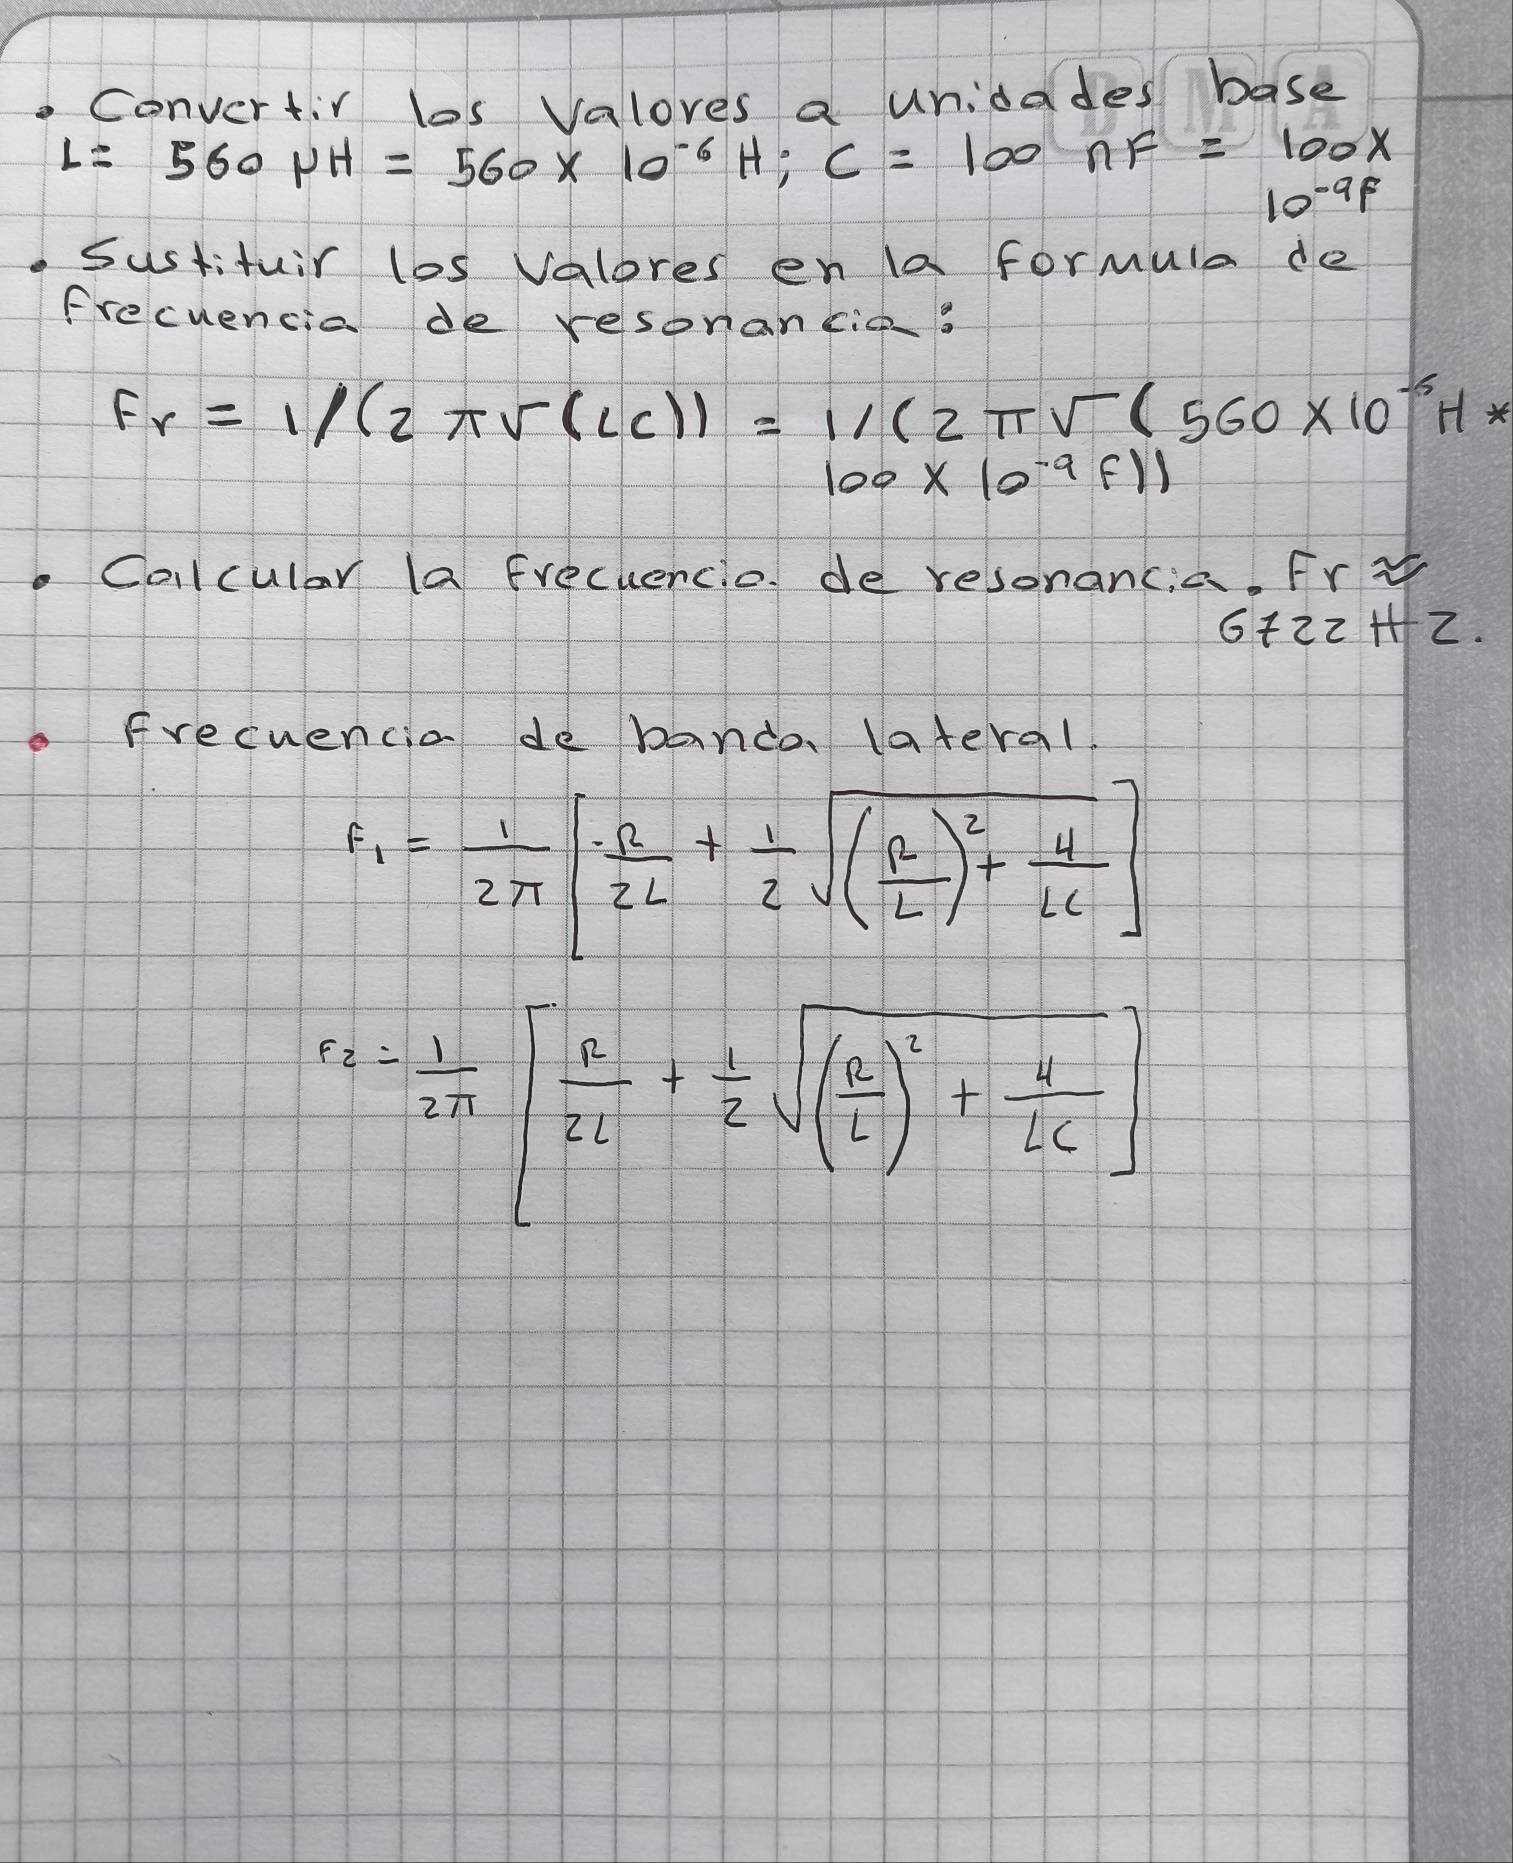 D M A
• Convertir los valores a unidades base
L = 560 µH = 560 X 10⁻⁶ H; C = 100 nF = 100X
10⁻⁹F
• Sustituir los valores en la formula de
frecuencia de resonancia:
Fr = 1/(2 π√(LC)) = 1/(2 π√(560 X10⁻⁵H *
100 X 10⁻⁹ F))
• Calcular la frecuencia de resonancia. Fr ≈
6722 HZ.
• frecuencia de banda lateral.
F₁ = 1/2π [-R/2L + 1/2 √((R/L)² + 4/LC)]
F2 = 1/2π [R/2L + 1/2 √((R/L)² + 4/LC)]